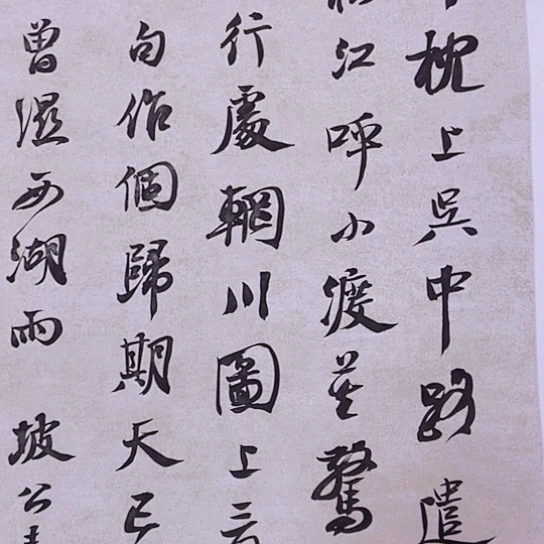 枕上吳中路遣
江呼小渡莫驚
行處輞川圖上
句作個歸期天已
曾濕西湖雨 坡公